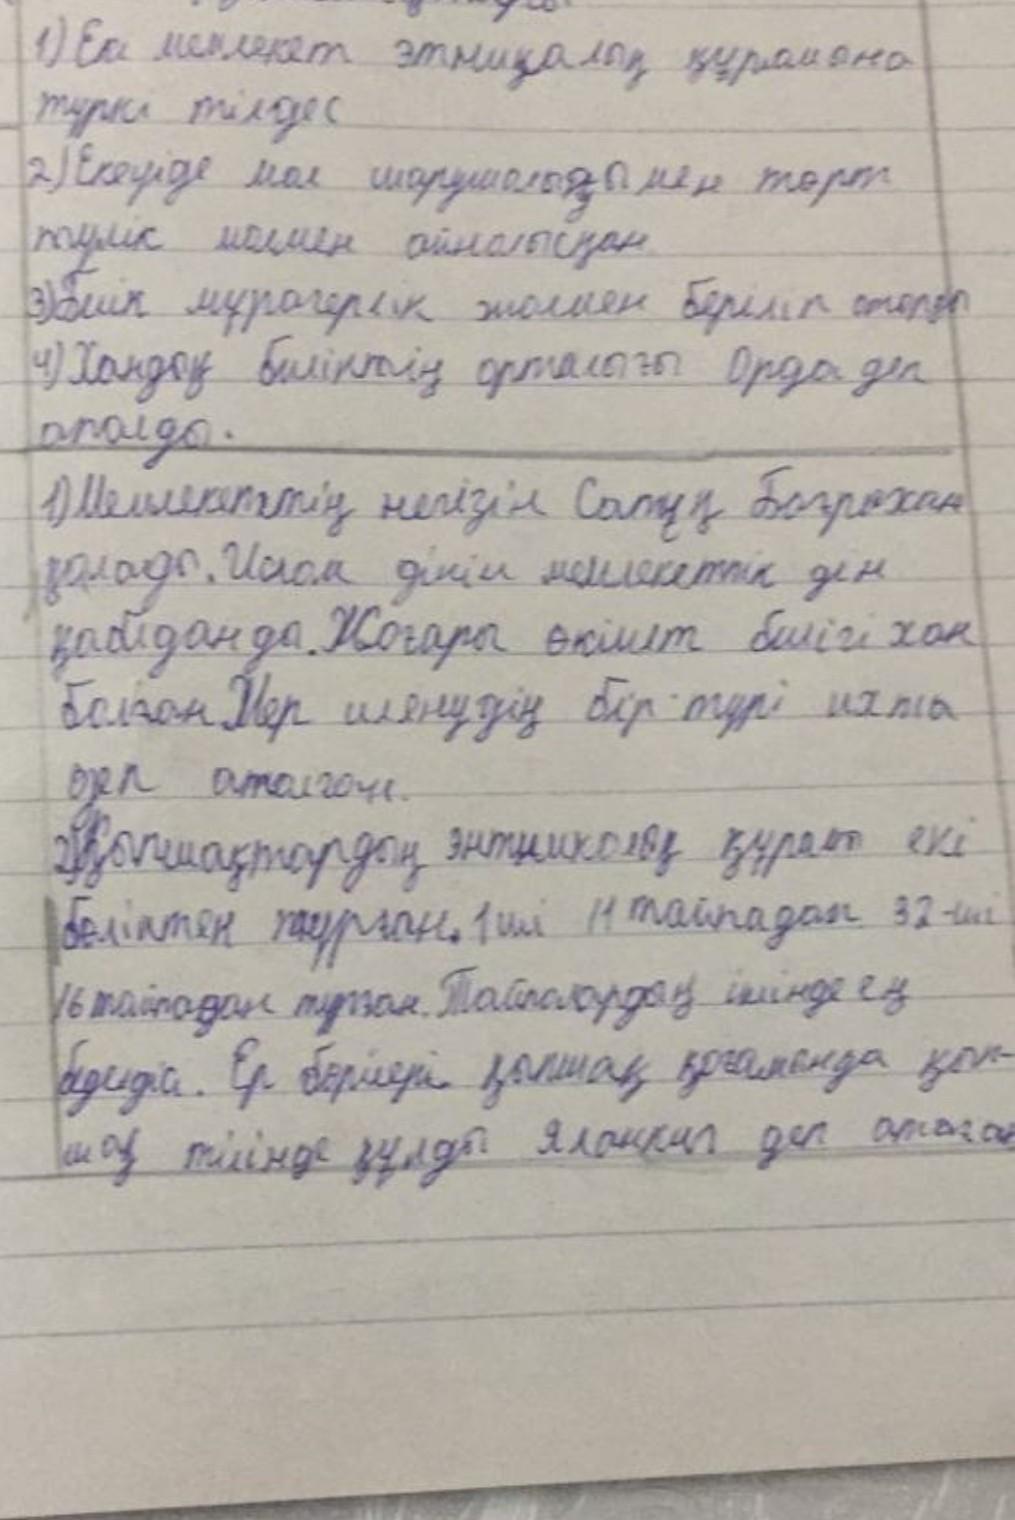 1) Екі мемлекет этникалық құрамына
түркі тілдес
2) Екеуіде мал шаруашылығымен төрт
түлік малмен айналысқан
3) Билік мұрагерлік жолмен беріліп отырды
4) Хандық биліктің орталығы Орда деп
аталды.
1) Мемлекеттің негізін Сатұқ Боғрахан
қалады. Ислам дінін мемлекеттік дін
қабылданды. Жоғары өкімет билігі хан
болған Жер иленудің бір түрі ихта
деп аталған.
2) Қыпшақтардың энтникалық құрамы екі
бөліктен тұрған. 1ші 11 тайпадан 32-ші
16 тайпадан тұрған. Тайпалардың ішінде ең
Ер бөрілері қыпшақ қоғамында қып-
шақ тілінде құлды Яланкиг деп атаған